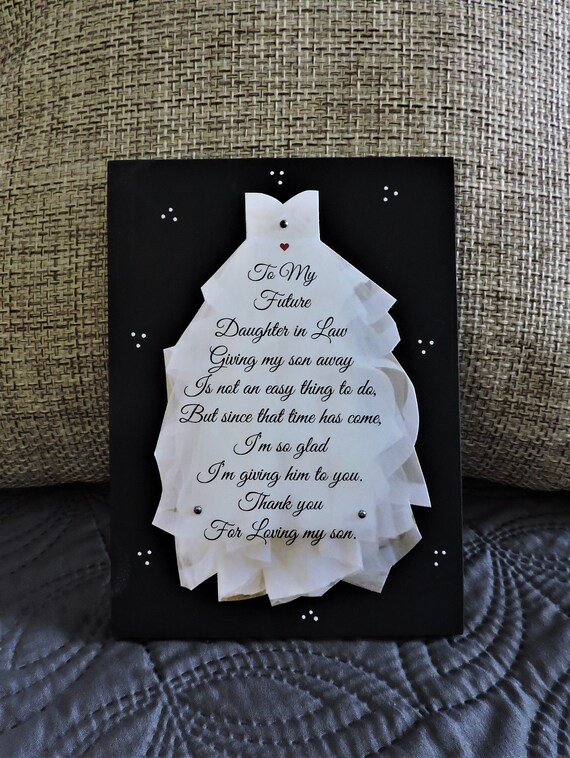 To My
Future
Daughter in Law
Giving my son away
Is not an easy thing to do,
But since that time has come,
I'm so glad
I'm giving him to you.
Thank you
For Loving my son.